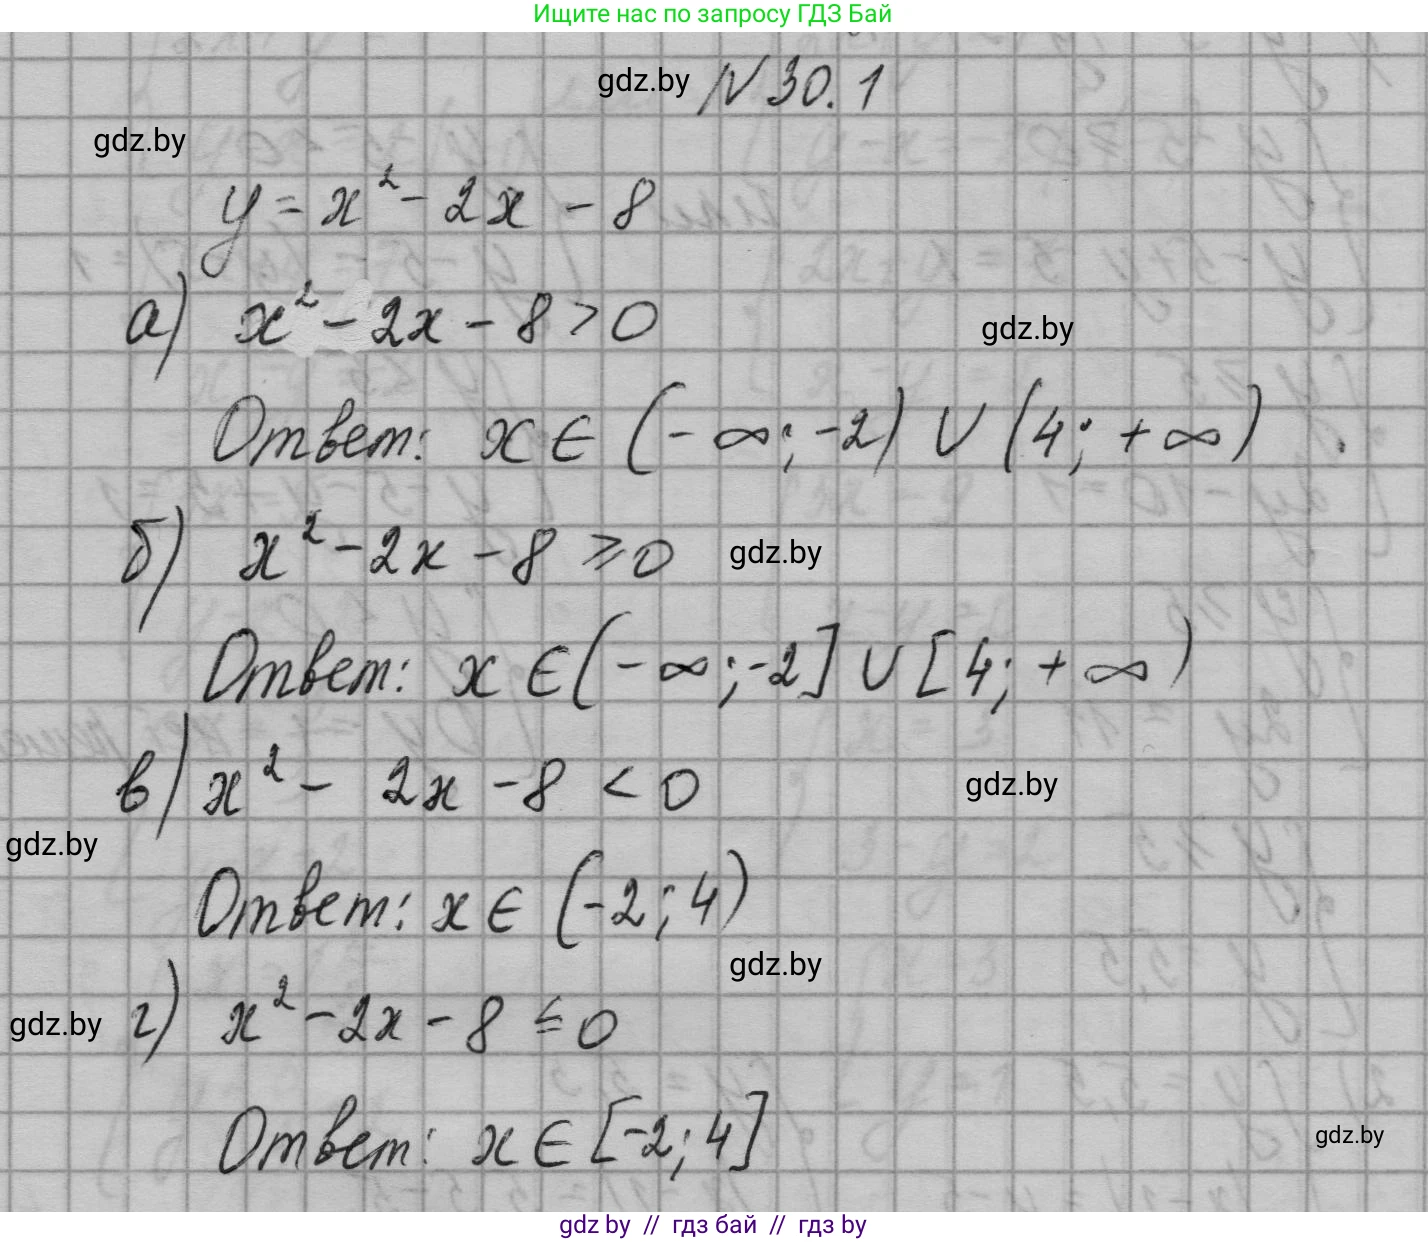 Ищите нас по запросу ГДЗ Бай
gdz.by N 30.1
gdz.by
y = x² - 2x - 8
а) x² - 2x - 8 > 0
gdz.by
Ответ: x ∈ (-∞; -2) ∪ (4; +∞).
б) x² - 2x - 8 ≥ 0 gdz.by
Ответ: x ∈ (-∞; -2] ∪ [4; +∞)
в) x² - 2x - 8 < 0 gdz.by
gdz.by
Ответ: x ∈ (-2; 4)
gdz.by
gdz.by г) x² - 2x - 8 ≤ 0
Ответ: x ∈ [-2; 4]
gdz.by
gdz by // гдз бай // гдз by